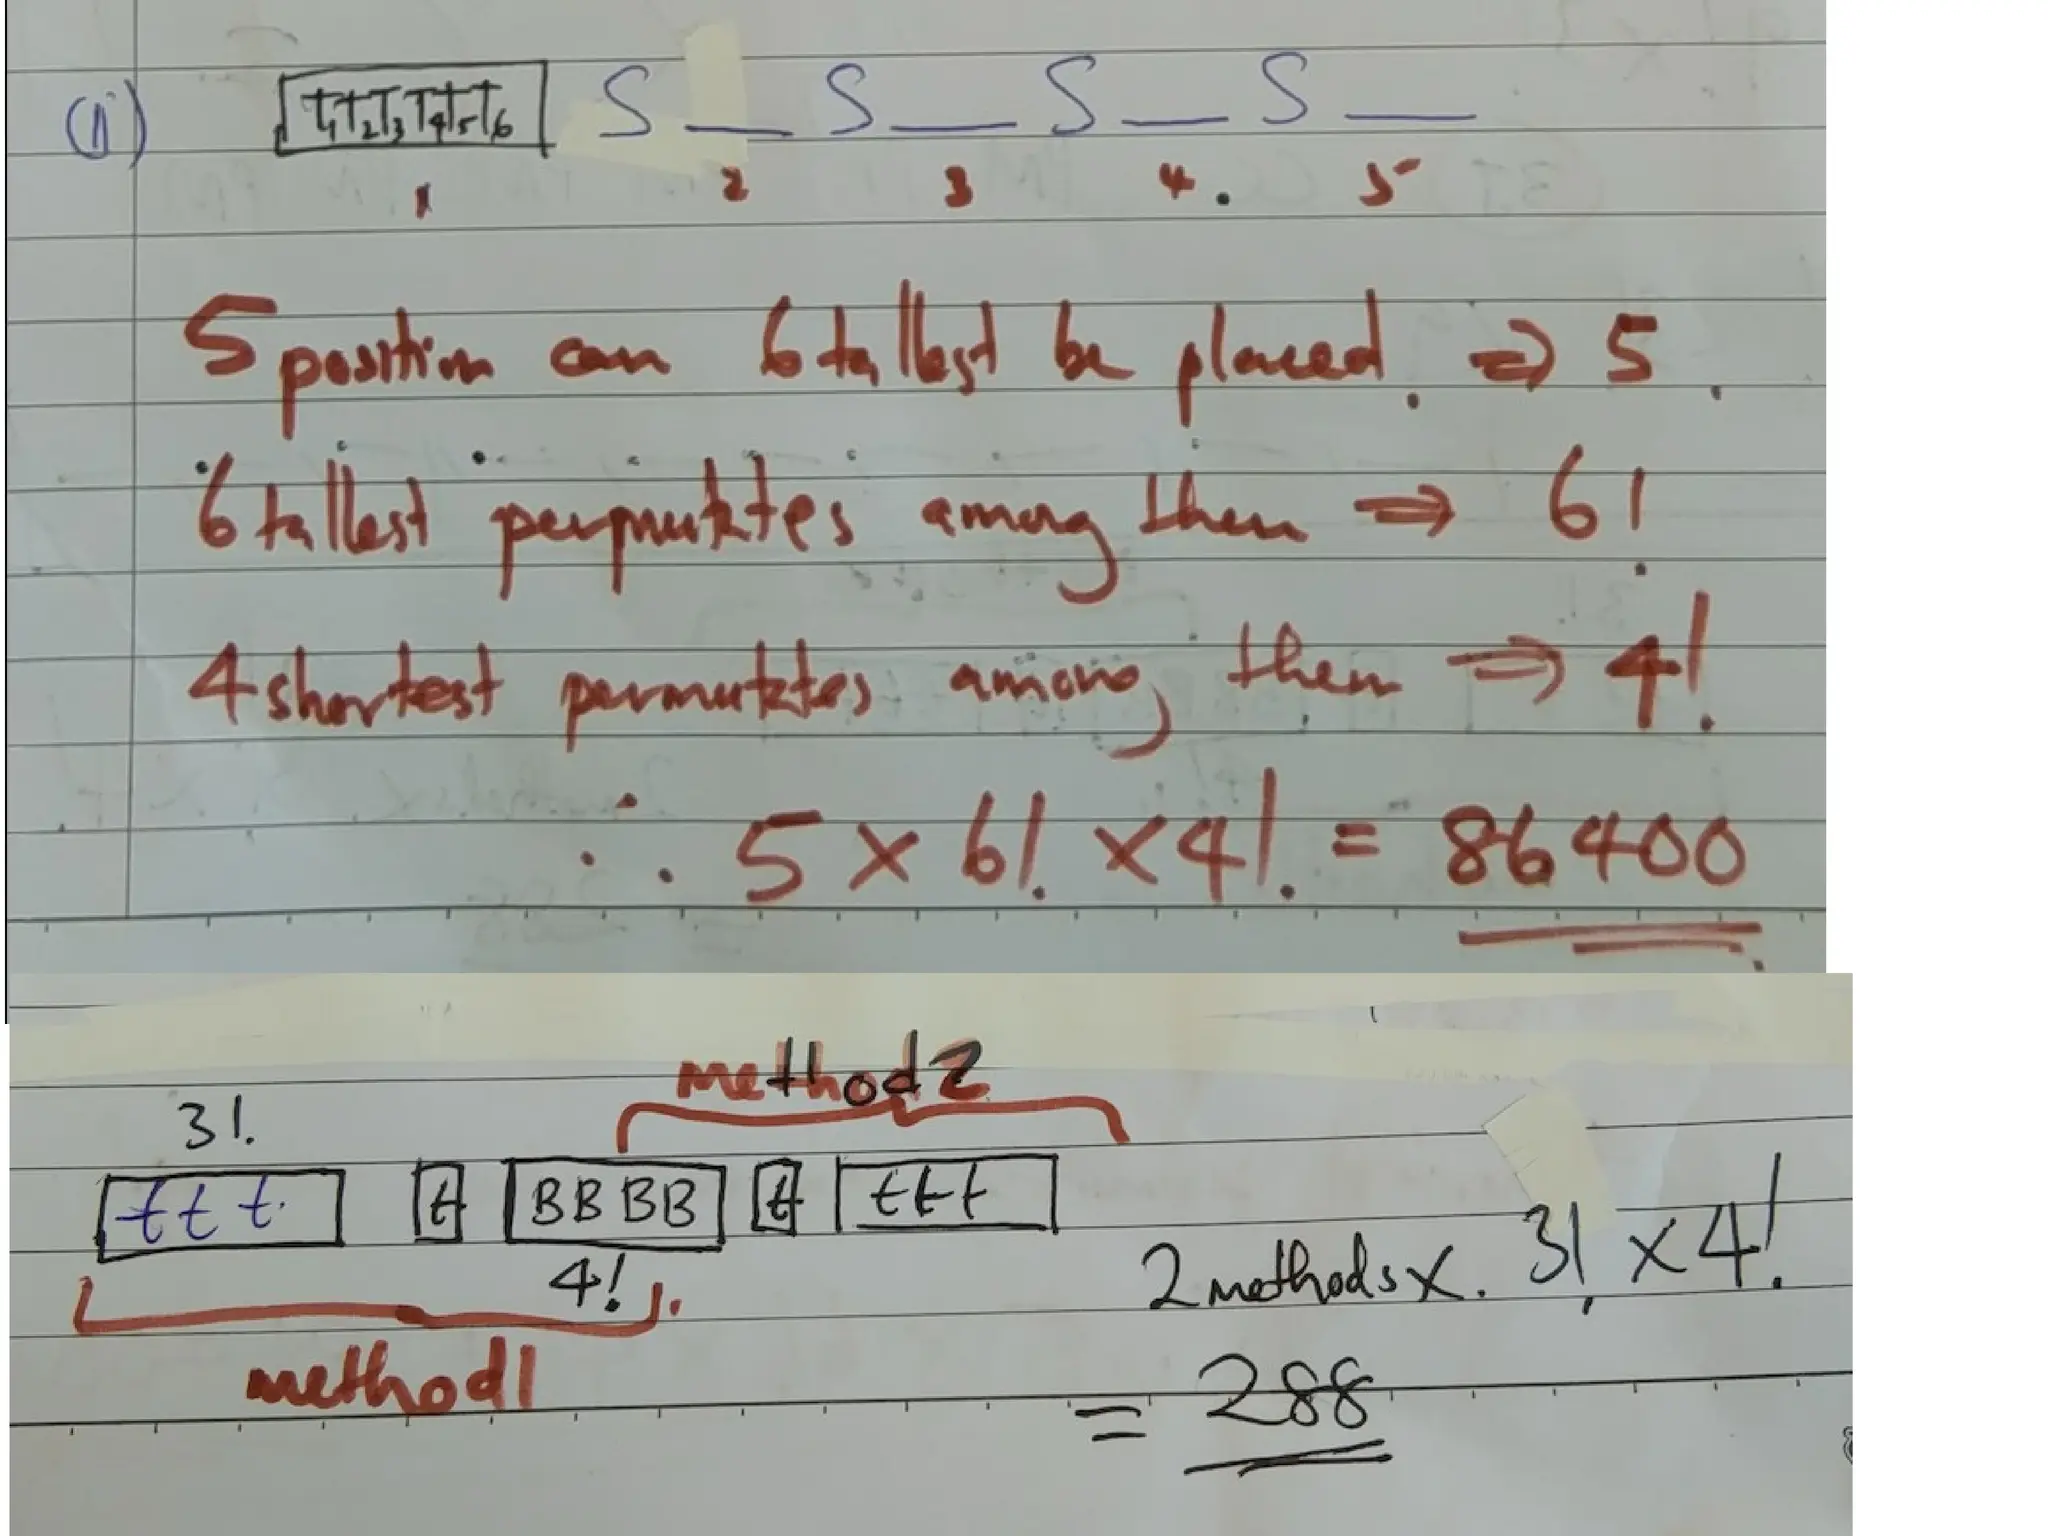 (ii) T1T2T3T4T5T6 S __ S __ S __ S __
1 2 3 4. 5
5 position can 6 tallest be placed. ⇒ 5.
6 tallest perpmutates among them ⇒ 6!
4 shortest permutates among them ⇒ 4!
∴ 5 × 6! × 4! = 86400
method 2
3!
t t t. t BB BB t t t t
4!
2 methods × 3! × 4!
method 1
= 288